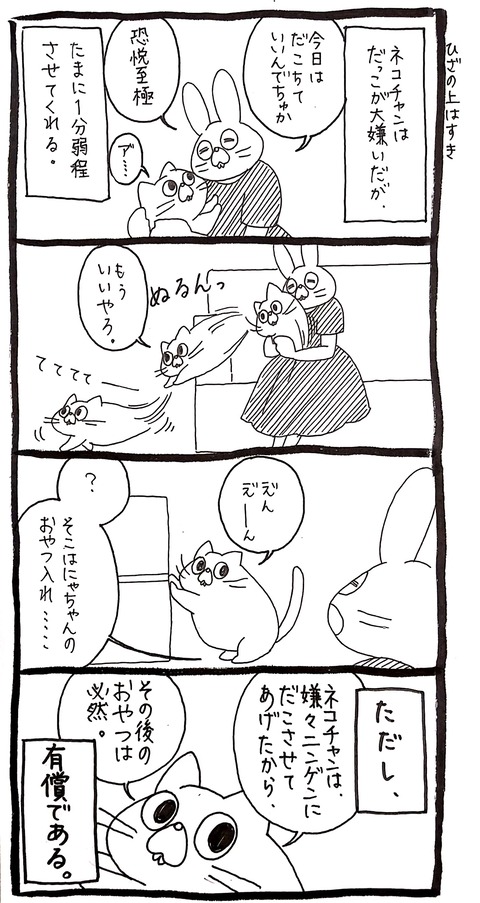 ひざの上はすき
ネコチャンは
だっこが大嫌いだが、
今日は
だこちて
いいんでちゅか
恐悦至極
ア゛…
たまに1分弱程
させてくれる。
ぬるんっ
もう
いいやろ。
てててて
えん
えーん
?
そこはにゃちゃんの
おやつ入れ……
ただし、
ネコチャンは、
嫌々ニンゲンに
だこさせて
あげたから、
その後の
おやつは
必然。
有償である。